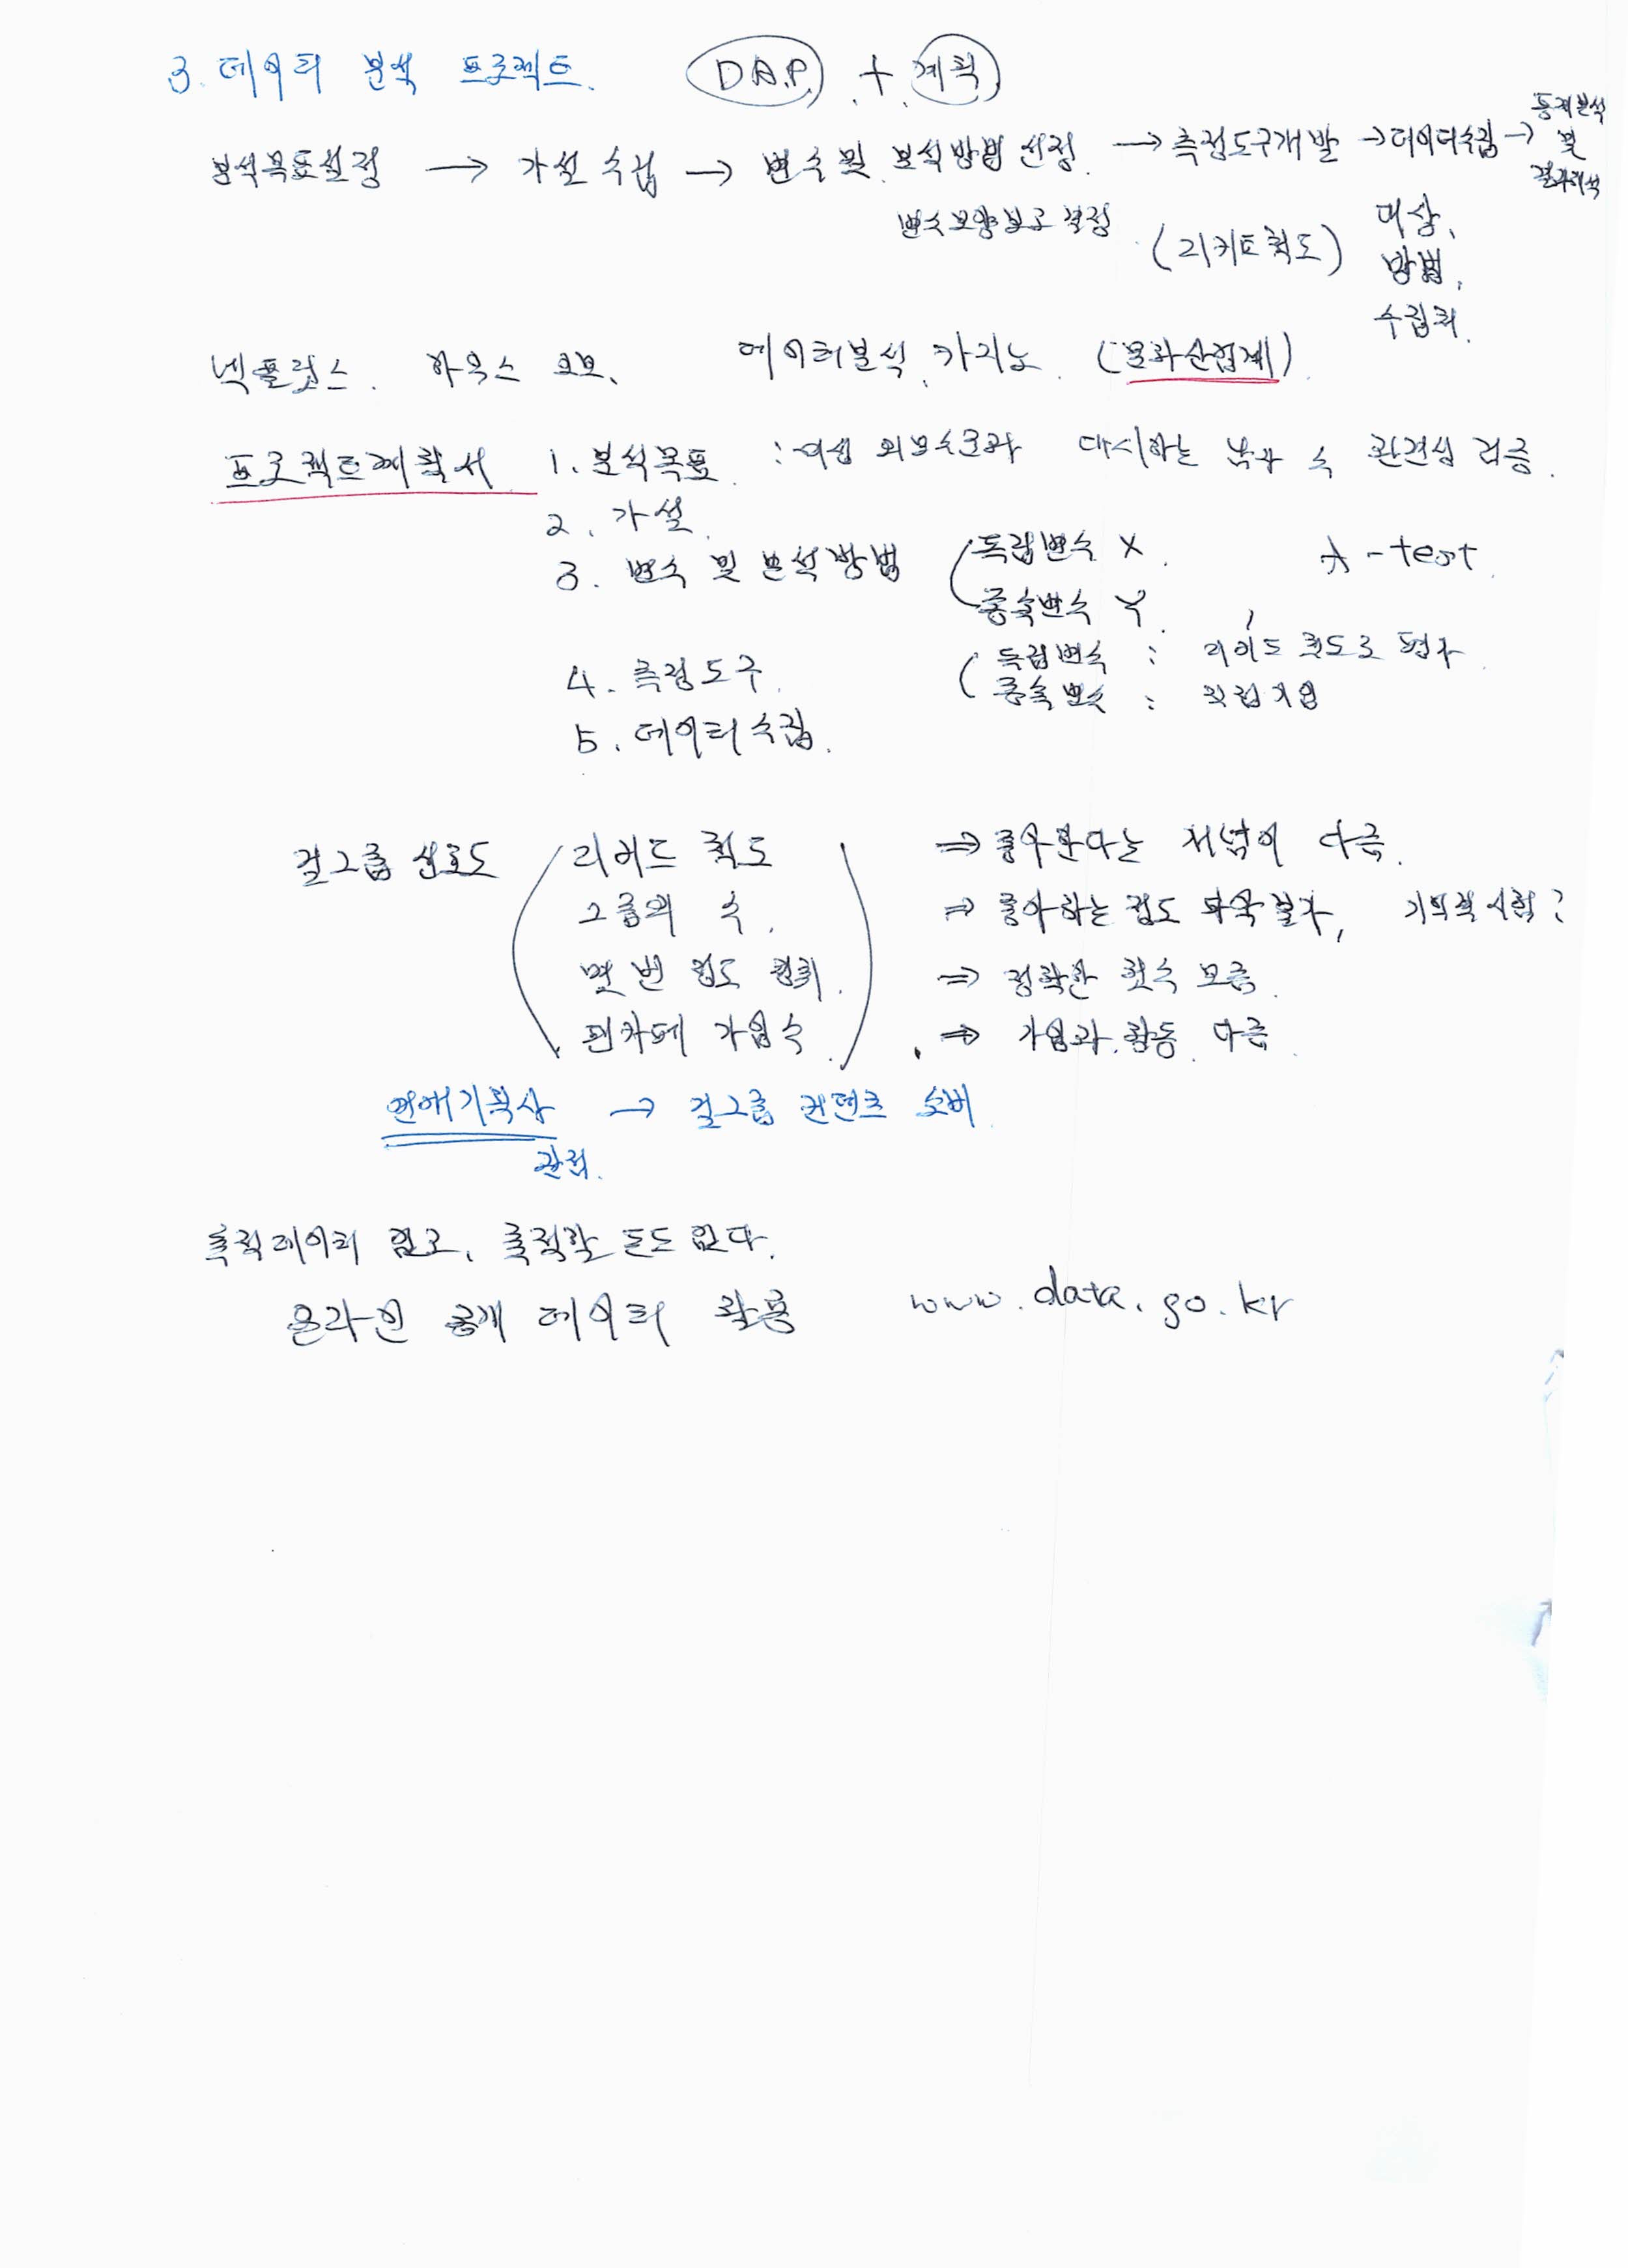 3. 데이터 분석 프로젝트. D.A.P. + 계획
분석목표설정 → 가설 수립 → 변수 및 분석방법 선정. → 측정도구개발 → 데이터수집 → 통계분석 및 결과해석
변수모양보고 결정 (리커트척도) 대상,
방법,
수집처.
넷플릭스. 하우스 데이터분석, 카지노 (문화산업계).
프로젝트계획서 1. 분석목표 : 여성 외모수준과 대시하는 남자 수 관련성 검증.
2. 가설.
3. 변수 및 분석방법 독립변수 X. t-test.
종속변수 Y.
4. 측정도구. 독립변수 : 척도로 평가.
종속변수 : 직접기입
5. 데이터수집.
걸그룹 선호도 리커트 척도 ⇒ 좋아한다는 개념이 다름.
그룹의 수. ⇒ 좋아하는 정도 파악불가,
몇 번 정도 청취. ⇒ 정확한 횟수 모름.
팬카페 가입수. ⇒ 가입과 활동 다름.
연예기획사 → 걸그룹 컨텐츠 소비.
관점.
축적데이터 없고, 축적할 돈도 없다.
온라인 공개 데이터 활용 www.data.go.kr